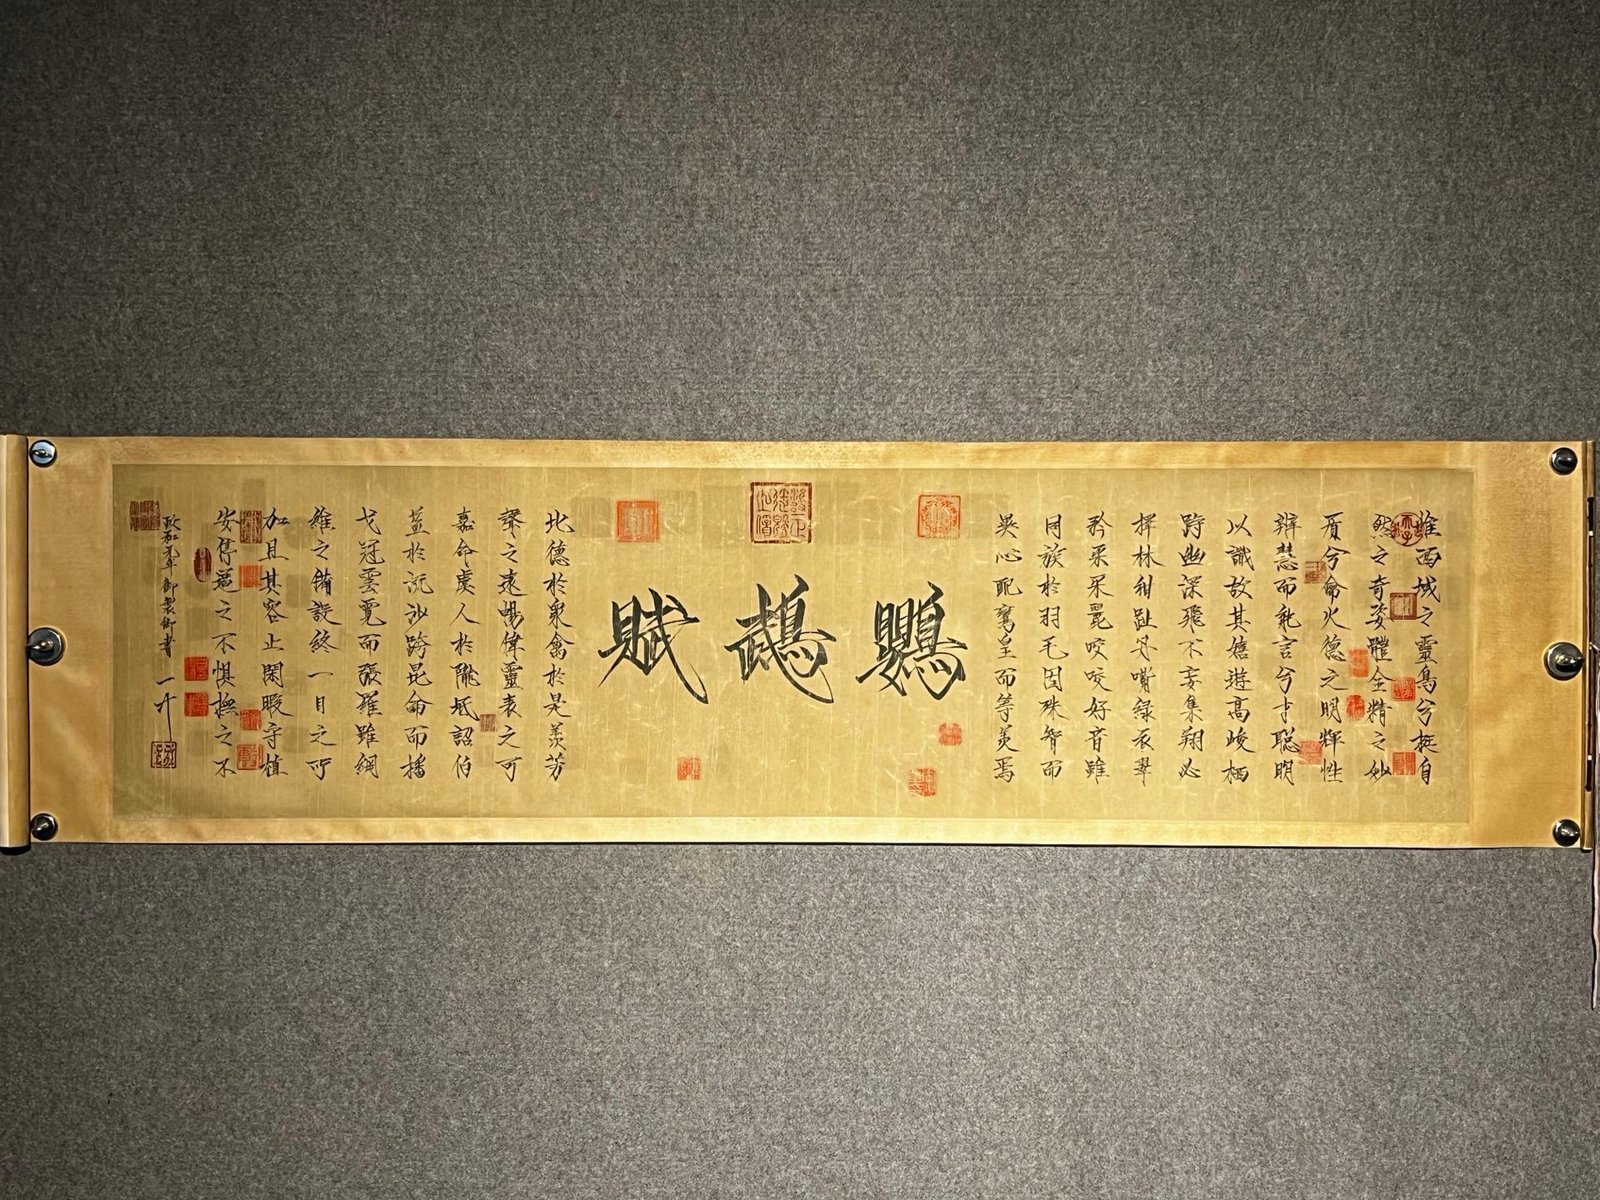 惟西域之靈鳥兮挺自
然之奇姿體全精之妙
質兮命火德之明輝性
辯慧而能言兮才聰明
以識故其嬉遊高峻栖
跱幽深飛不妄集翔必
擇林紺趾丹嘴綠衣翠
矜采采麗咬咬好音雖
同族於羽毛固殊智而
異心配鸞皇而等美焉
鸚鵡賦
比德於衆禽於是羨芳
聲之遠暢偉靈表之可
嘉命虞人於隴坻詔伯
益於流沙跨昆侖而播
弋冠雲霓而張羅雖綱
維之備設終一目之所
加且其容止閑暇守植
安停逼之不懼撫之不
政和元年御製御書